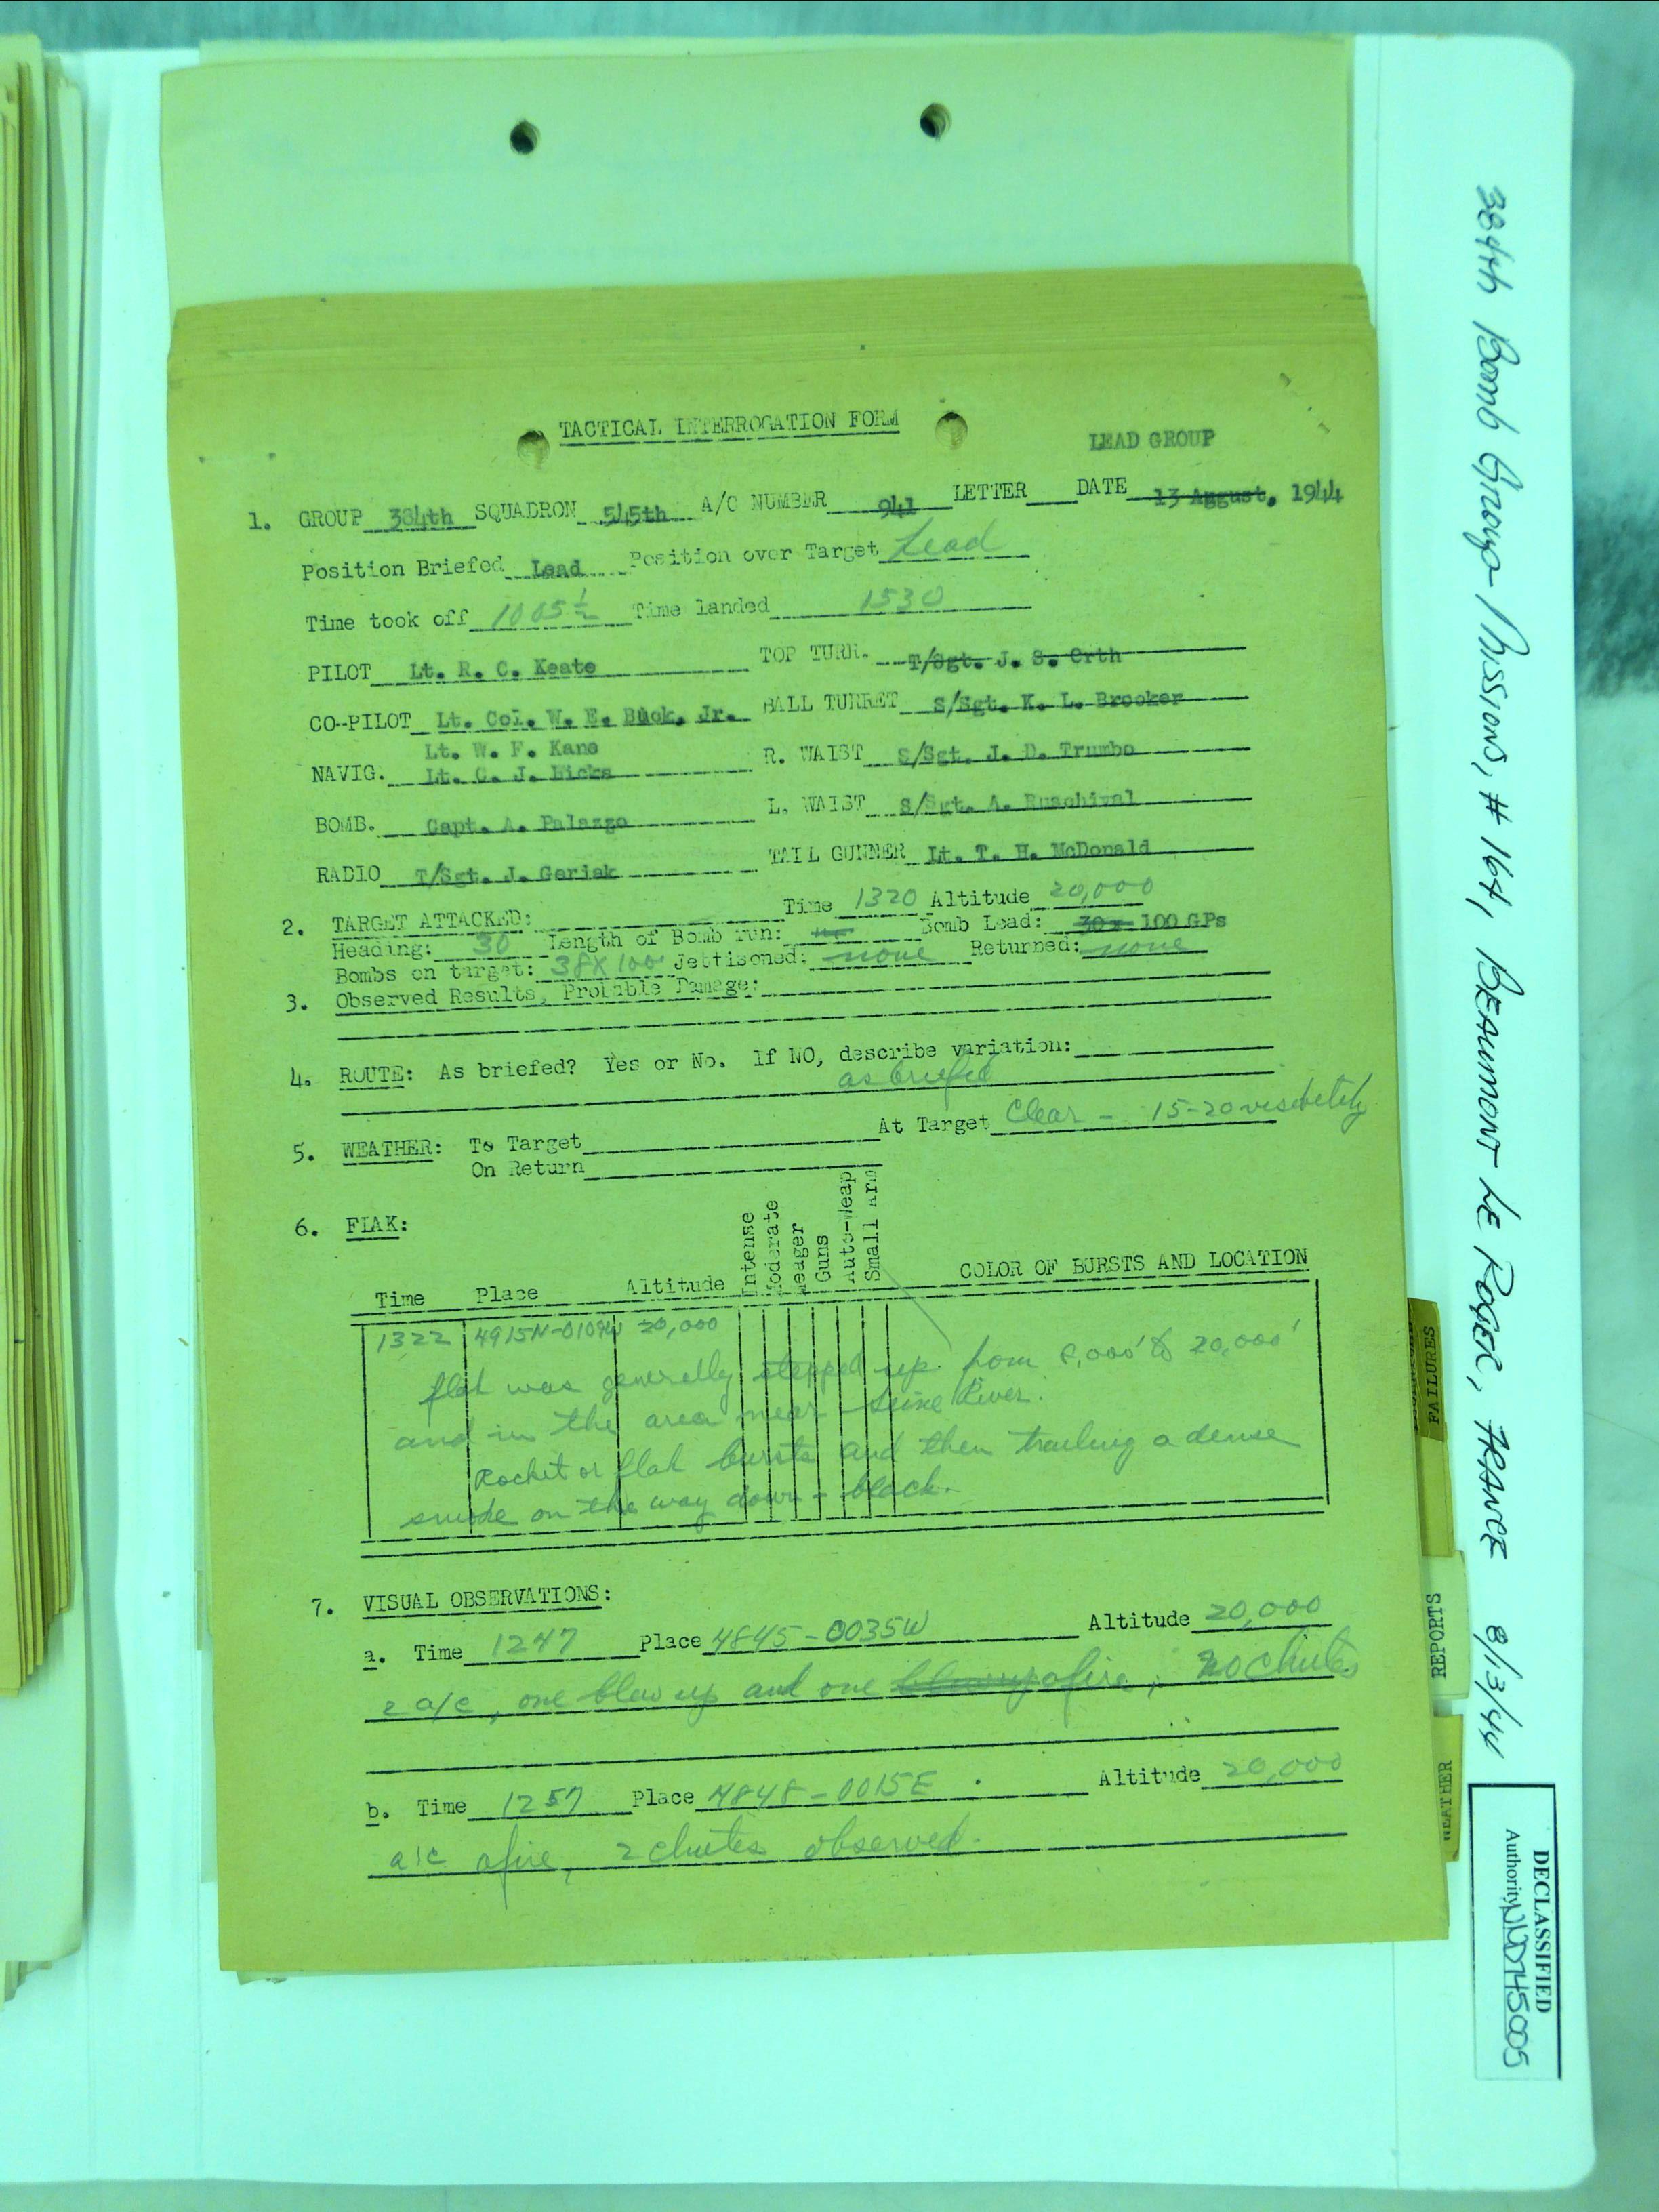 TACTICAL INTERROGATION FORM
LEAD GROUP
1. GROUP 384th SQUADRON 545th A/C NUMBER 941 LETTER DATE 13 August, 1944
Position Briefed Lead Position over Target Lead
Time took off 1005½ Time landed 1530
PILOT Lt. R. C. Keate TOP TURR. T/Sgt. J. S. Orth
CO-PILOT Lt. Col. W. E. Buck, Jr. BALL TURRET S/Sgt. K. L. Brooker
Lt. W. F. Kane
NAVIG. Lt. C. J. Hicks R. WAIST S/Sgt. J. D. Trumbo
BOMB. Capt. A. Palazzo L. WAIST S/Sgt. A. Ruschival
RADIO T/Sgt. J. Geriak TAIL GUNNER Lt. T. H. McDonald
2. TARGET ATTACKED: Time 1320 Altitude 20,000
Heading: 30 Length of Bomb run: Bomb Load: 30 x 100 GPs
Bombs on target: 38X100 Jettisoned: none Returned: none
3. Observed Results, Probable Damage:
4. ROUTE: As briefed? Yes or No. If NO, describe variation:
as briefed
5. WEATHER: To Target At Target Clear - 15-20 visibility
On Return
6. FLAK:
Intense
Moderate
Meager
Guns
Auto-Weap
Small Arm
Time Place Altitude COLOR OF BURSTS AND LOCATION
1322 4915N-0109W 20,000
flak was generally stepped up from ,000' to 20,000'
and in the area near Seine River.
Rocket or flak bursts and then trailing a dense
smoke on the way down - black.
7. VISUAL OBSERVATIONS:
a. Time 1247 Place 4845-0035W Altitude 20,000
2 a/c, one blew up and one blew up afire, no chutes
b. Time 1257 Place 4848-0015E Altitude 20,000
a/c afire, 2 chutes observed.
384th Bomb Group Missions, #164, BEAUMONT LE ROGER, FRANCE 8/13/44
FAILURES
REPORTS
WEATHER
DECLASSIFIED
Authority NND745005